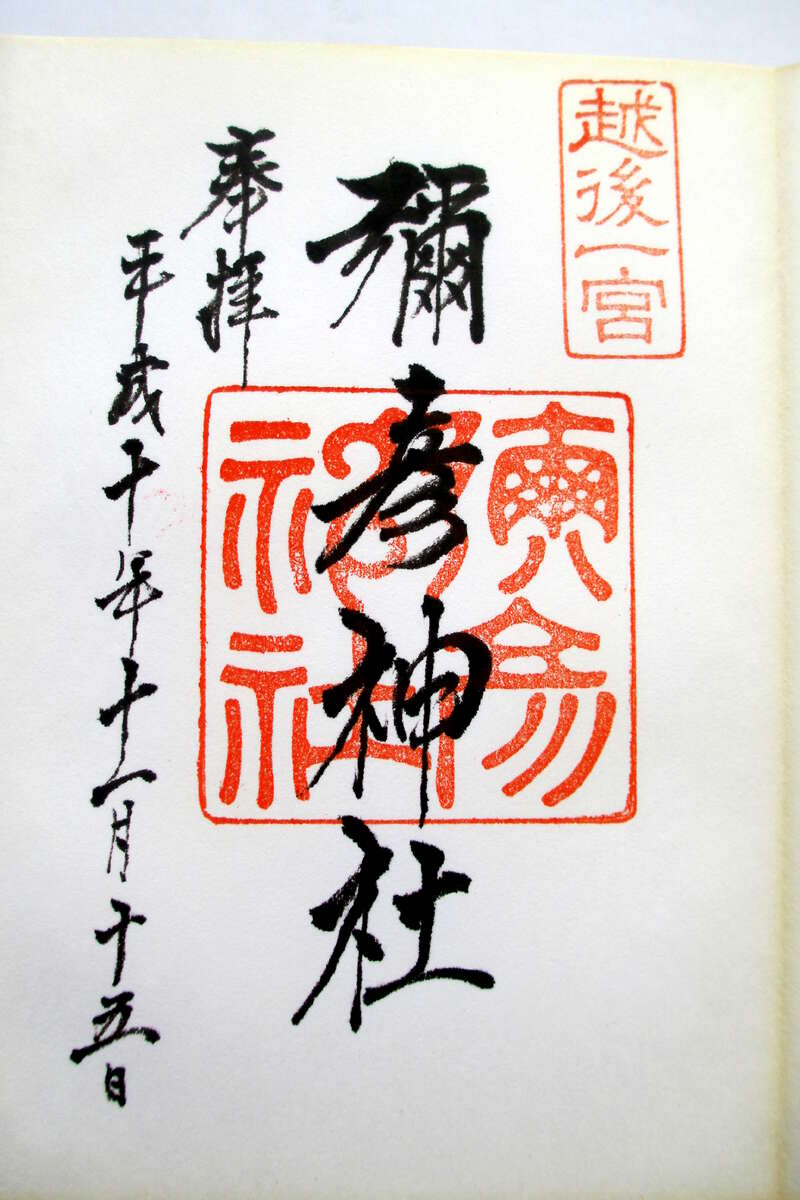 越後一宮
彌彦神社
奉拝
平成十年十一月十五日